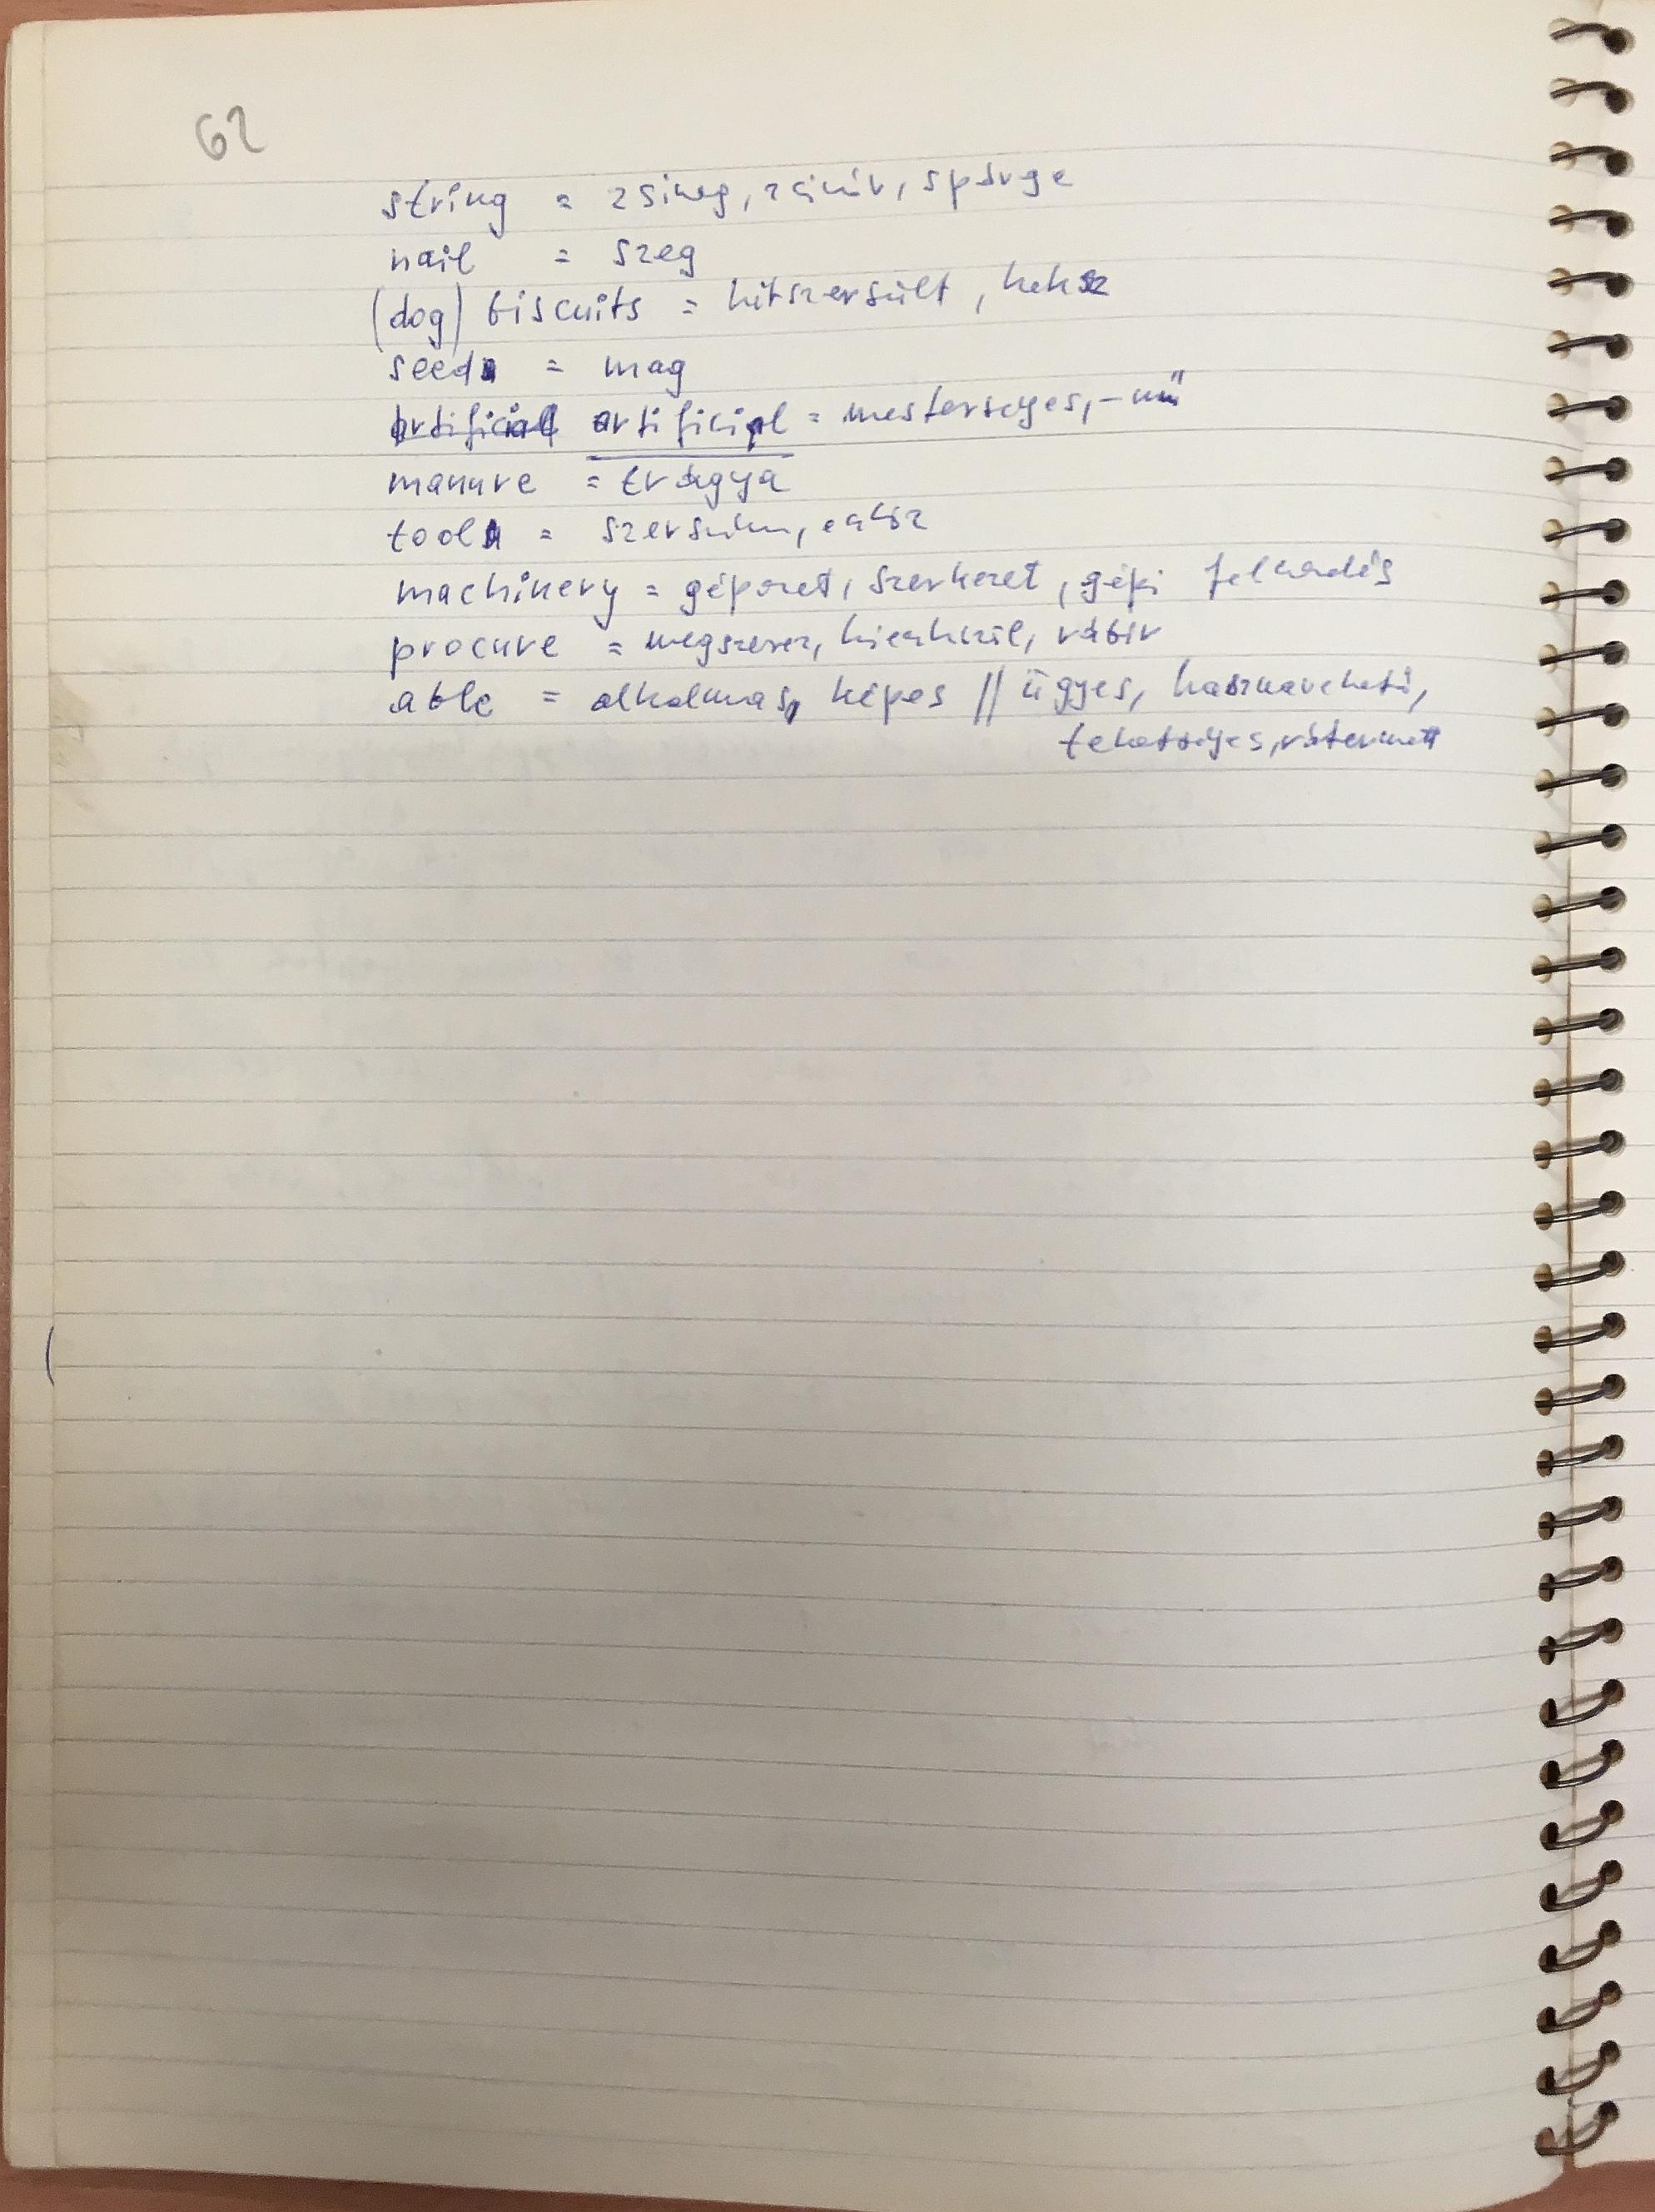 62
string = zsineg, zsinór, spárga
nail = szeg
(dog) biscuits = kétszersült, keksz
seed = mag
artificial artificial = mesterséges, -mű
manure = trágya
tool = szerszám, eszköz
machinery = gépezet, szerkezet, gépi
procure = megszerez, kieszközöl, rábír
able = alkalmas, képes // ügyes, használható,
tehetséges, rátermett